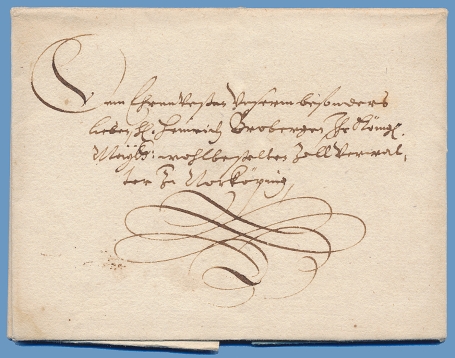 Dem Ehrenvesten Unserm besonders
lieben H. Heinrich Broberger Ihr Königl.
Maytt: wohlbestelten Zoll Verwal-
ter zu Norköping